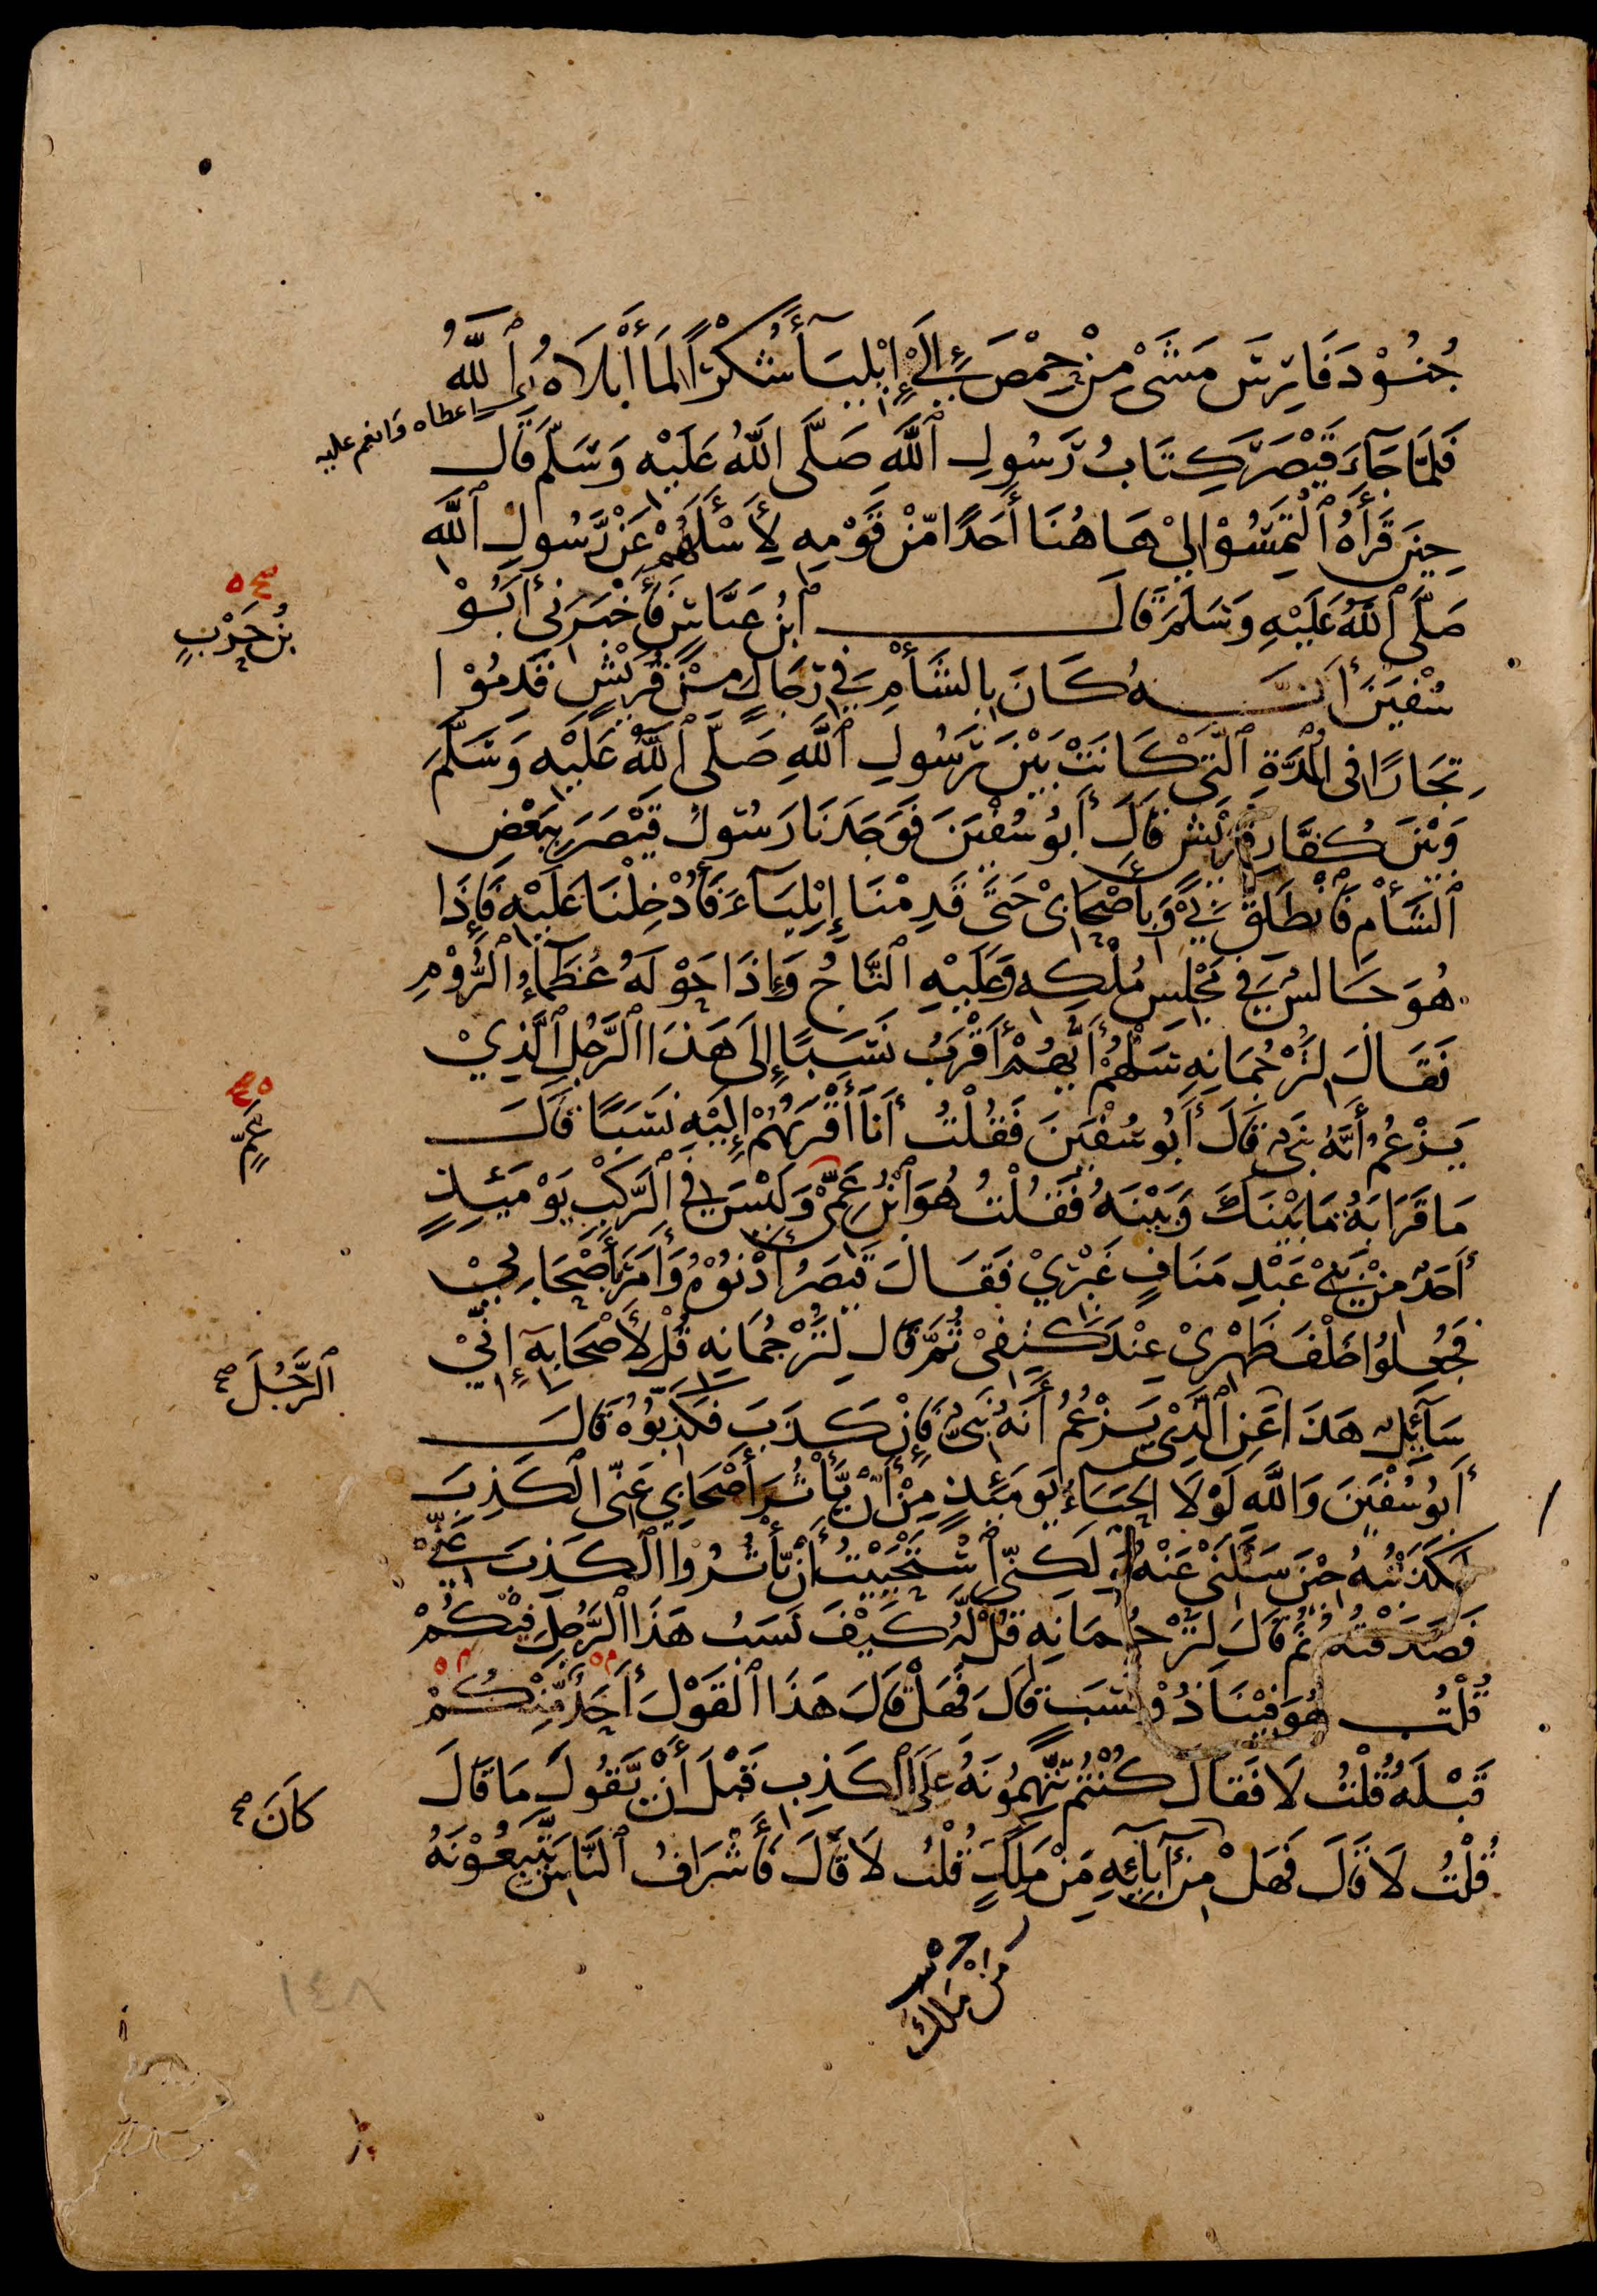 جُنُوْدَ فَارِسَ مَشَىٰ مِنْ حِمْصَ إِلَىٰ إِيْلِيَآءَ شُكْرًا لِمَا أَبْلَاهُ ٱللَّهُ
اى اعطاه وانعم عليه
فَلَمَّا جَآءَ قَيْصَرَ كِتَابُ رَسُولِ ٱللَّهِ صَلَّى اللَّهُ عَلَيْهِ وَسَلَّمَ قَالَ
حِينَ قَرَأَهُ ٱلْتَمِسُوْا لِيْ هَاهُنَا أَحَدًا مِّنْ قَوْمِهِ لِأَسْأَلَهُمْ عَنْ رَّسُولِ ٱللَّهِ
صَلَّى ٱللَّهُ عَلَيْهِ وَسَلَّمَ قَالَ ٱبْنُ عَبَّاسٍ فَأَخْبَرَنِيْ أَبُوْ
بْنُ حَرْبٍ صح ه
سُفْيٰنَ أَنَّهُ كَانَ بِالشَّأْمِ فِيْ رِجَالٍ مِنْ قُرَيْشٍ قَدِمُوْا
تِجَارًا فِى ٱلْمُدَّةِ ٱلَّتِيْ كَانَتْ بَيْنَ رَسُولِ ٱللَّهِ صَلَّى ٱللَّهُ عَلَيْهِ وَسَلَّمَ
وَبَيْنَ كُفَّارِ قُرَيْشٍ قَالَ أَبُوْ سُفْيٰنَ فَوَجَدَنَا رَسُوْلُ قَيْصَرَ بِبَعْضِ
ٱلشَّأْمِ فَٱنْطَلَقَ بِيْ وَبِأَصْحَابِيْ حَتَّىٰ قَدِمْنَا إِيْلِيَآءَ فَأُدْخِلْنَا عَلَيْهِ فَإِذَا
هُوَ جَالِسٌ فِيْ مَجْلِسِ مُلْكِهِ وَعَلَيْهِ ٱلتَّاجُ وَإِذَا حَوْلَهُ عُظَمَآءُ ٱلرُّوْمِ
فَقَالَ لِتَرْجُمَانِهِ سَلْهُمْ أَيُّهُمْ أَقْرَبُ نَسَبًا إِلَى هَذَا ٱلرَّجُلِ ٱلَّذِيْ
يَزْعُمُ أَنَّهُ نَبِيٌّ قَالَ أَبُوْ سُفْيٰنَ فَقُلْتُ أَنَا أَقْرَبُهُمْ إِلَيْهِ نَسَبًا قَالَ
عَمٍّ
مَا قَرَابَةُ مَا بَيْنَكَ وَبَيْنَهُ فَقُلْتُ هُوَ ٱبْنُ عَمِّيْ وَلَيْسَ فِي ٱلرَّكْبِ يَوْمَئِذٍ
أَحَدٌ مِنْ بَنِيْ عَبْدِ مَنَافٍ غَيْرِيْ فَقَالَ قَيْصَرُ أَدْنُوْهُ وَأَمَرَ بِأَصْحَابِيْ
فَجُعِلُوْا خَلْفَ ظَهْرِيْ عِنْدَ كَتِفِيْ ثُمَّ قَالَ لِتَرْجُمَانِهِ قُلْ لِأَصْحَابِهِ إِنِّيْ
ٱلرَّجُلَ صح
سَآئِلٌ هَذَا عَنِ ٱلَّذِيْ يَزْعُمُ أَنَّهُ نَبِيٌّ فَإِنْ كَذَبَ فَكَذِّبُوْهُ قَالَ
أَبُوْ سُفْيٰنَ وَاللَّهِ لَوْلَا الْحَيَاءُ يَوْمَئِذٍ مِنْ أَنْ يَّأْثُرَ أَصْحَابِيْ عَنِّى ٱلْكَذِبَ
لَكَذَبْتُهُ حِيْنَ سَأَلَنِيْ عَنْهُ وَلَكِنِّي ٱسْتَحْيَيْتُ أَنْ يَّأْثُرُوا ٱلْكَذِبَ عَنِّيْ
فَصَدَقْتُهُ ثُمَّ قَالَ لِتَرْجُمَانِهِ قُلْ لَّهُ كَيْفَ نَسَبُ هَذَا ٱلرَّجُلِ فِيْكُمْ
قُلْتُ هُوَ فِيْنَا ذُوْ نَسَبٍ قَالَ فَهَلْ قَالَ هَذَا ٱلْقَوْلَ أَحَدٌ مِّنْكُمْ
قَبْلَهُ قُلْتُ لَا فَقَالَ كُنْتُمْ تَتَّهِمُوْنَهُ عَلَى ٱلْكَذِبِ قَبْلَ أَنْ يَّقُوْلَ مَا قَالَ
كَانَ صح
قُلْتُ لَا قَالَ فَهَلْ مِنْ آبَآئِهِ مَنْ مَلَكَ قُلْتُ لَا قَالَ فَأَشْرَافُ ٱلنَّاسِ يَتَّبِعُوْنَهُ
مِنْ مَلِكٍ
١٤٨